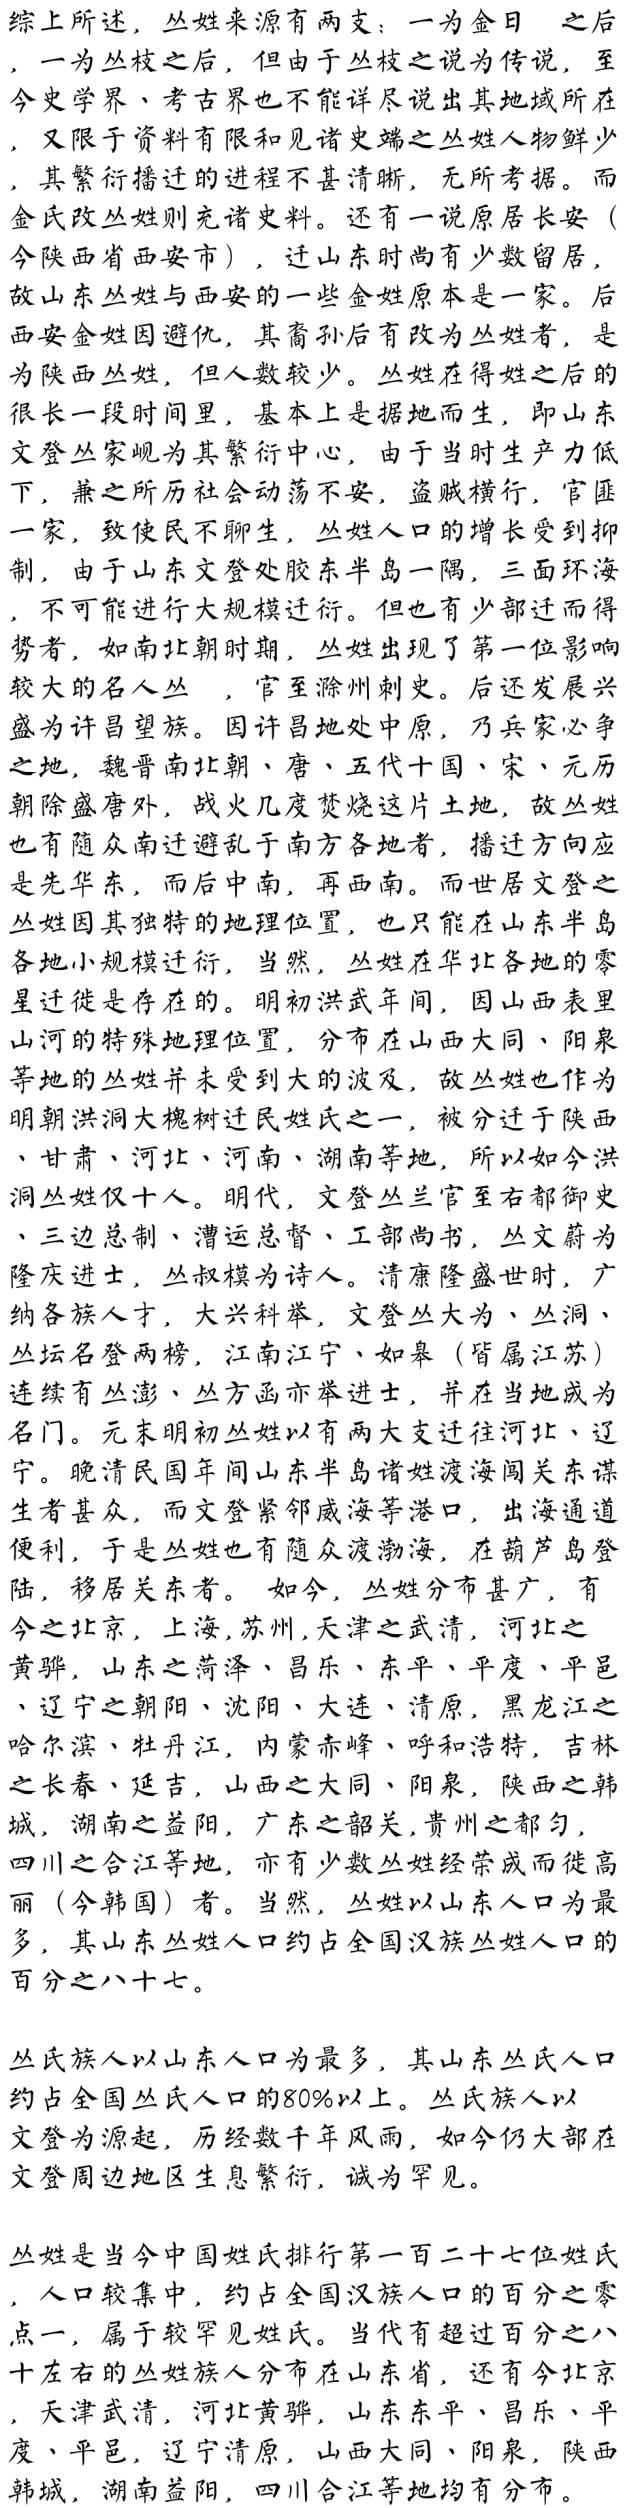 综上所述，丛姓来源有两支：一为金日　之后
，一为丛枝之后，但由于丛枝之说为传说，至
今史学界、考古界也不能详尽说出其地域所在
，又限于资料有限和见诸史端之丛姓人物鲜少
，其繁衍播迁的进程不甚清晰，无所考据。而
金氏改丛姓则充诸史料。还有一说原居长安（
今陕西省西安市），迁山东时尚有少数留居，
故山东丛姓与西安的一些金姓原本是一家。后
西安金姓因避仇，其裔孙后有改为丛姓者，是
为陕西丛姓，但人数较少。丛姓在得姓之后的
很长一段时间里，基本上是据地而生，即山东
文登丛家岘为其繁衍中心，由于当时生产力低
下，兼之所历社会动荡不安，盗贼横行，官匪
一家，致使民不聊生，丛姓人口的增长受到抑
制，由于山东文登处胶东半岛一隅，三面环海
，不可能进行大规模迁衍。但也有少部迁而得
势者，如南北朝时期，丛姓出现了第一位影响
较大的名人丛　，官至滁州刺史。后还发展兴
盛为许昌望族。因许昌地处中原，乃兵家必争
之地，魏晋南北朝、唐、五代十国、宋、元历
朝除盛唐外，战火几度焚烧这片土地，故丛姓
也有随众南迁避乱于南方各地者，播迁方向应
是先华东，而后中南，再西南。而世居文登之
丛姓因其独特的地理位置，也只能在山东半岛
各地小规模迁衍，当然，丛姓在华北各地的零
星迁徙是存在的。明初洪武年间，因山西表里
山河的特殊地理位置，分布在山西大同、阳泉
等地的丛姓并未受到大的波及，故丛姓也作为
明朝洪洞大槐树迁民姓氏之一，被分迁于陕西
、甘肃、河北、河南、湖南等地，所以如今洪
洞丛姓仅十人。明代，文登丛兰官至右都御史
、三边总制、漕运总督、工部尚书，丛文蔚为
隆庆进士，丛叔模为诗人。清康隆盛世时，广
纳各族人才，大兴科举，文登丛大为、丛洞、
丛坛名登两榜，江南江宁、如皋（皆属江苏）
连续有丛澎、丛方函亦举进士，并在当地成为
名门。元末明初丛姓以有两大支迁往河北、辽
宁。晚清民国年间山东半岛诸姓渡海闯关东谋
生者甚众，而文登紧邻威海等港口，出海通道
便利，于是丛姓也有随众渡渤海，在葫芦岛登
陆，移居关东者。 如今，丛姓分布甚广，有
今之北京，上海,苏州,天津之武清，河北之
黄骅，山东之菏泽、昌乐、东平、平度、平邑
、辽宁之朝阳、沈阳、大连、清原，黑龙江之
哈尔滨、牡丹江，内蒙赤峰、呼和浩特，吉林
之长春、延吉，山西之大同、阳泉，陕西之韩
城，湖南之益阳，广东之韶关,贵州之都匀，
四川之合江等地，亦有少数丛姓经荣成而徙高
丽（今韩国）者。当然，丛姓以山东人口为最
多，其山东丛姓人口约占全国汉族丛姓人口的
百分之八十七。
丛氏族人以山东人口为最多，其山东丛氏人口
约占全国丛氏人口的80%以上。丛氏族人以
文登为源起，历经数千年风雨，如今仍大部在
文登周边地区生息繁衍，诚为罕见。
丛姓是当今中国姓氏排行第一百二十七位姓氏
，人口较集中，约占全国汉族人口的百分之零
点一，属于较罕见姓氏。当代有超过百分之八
十左右的丛姓族人分布在山东省，还有今北京
，天津武清，河北黄骅，山东东平、昌乐、平
度、平邑，辽宁清原，山西大同、阳泉，陕西
韩城，湖南益阳，四川合江等地均有分布。